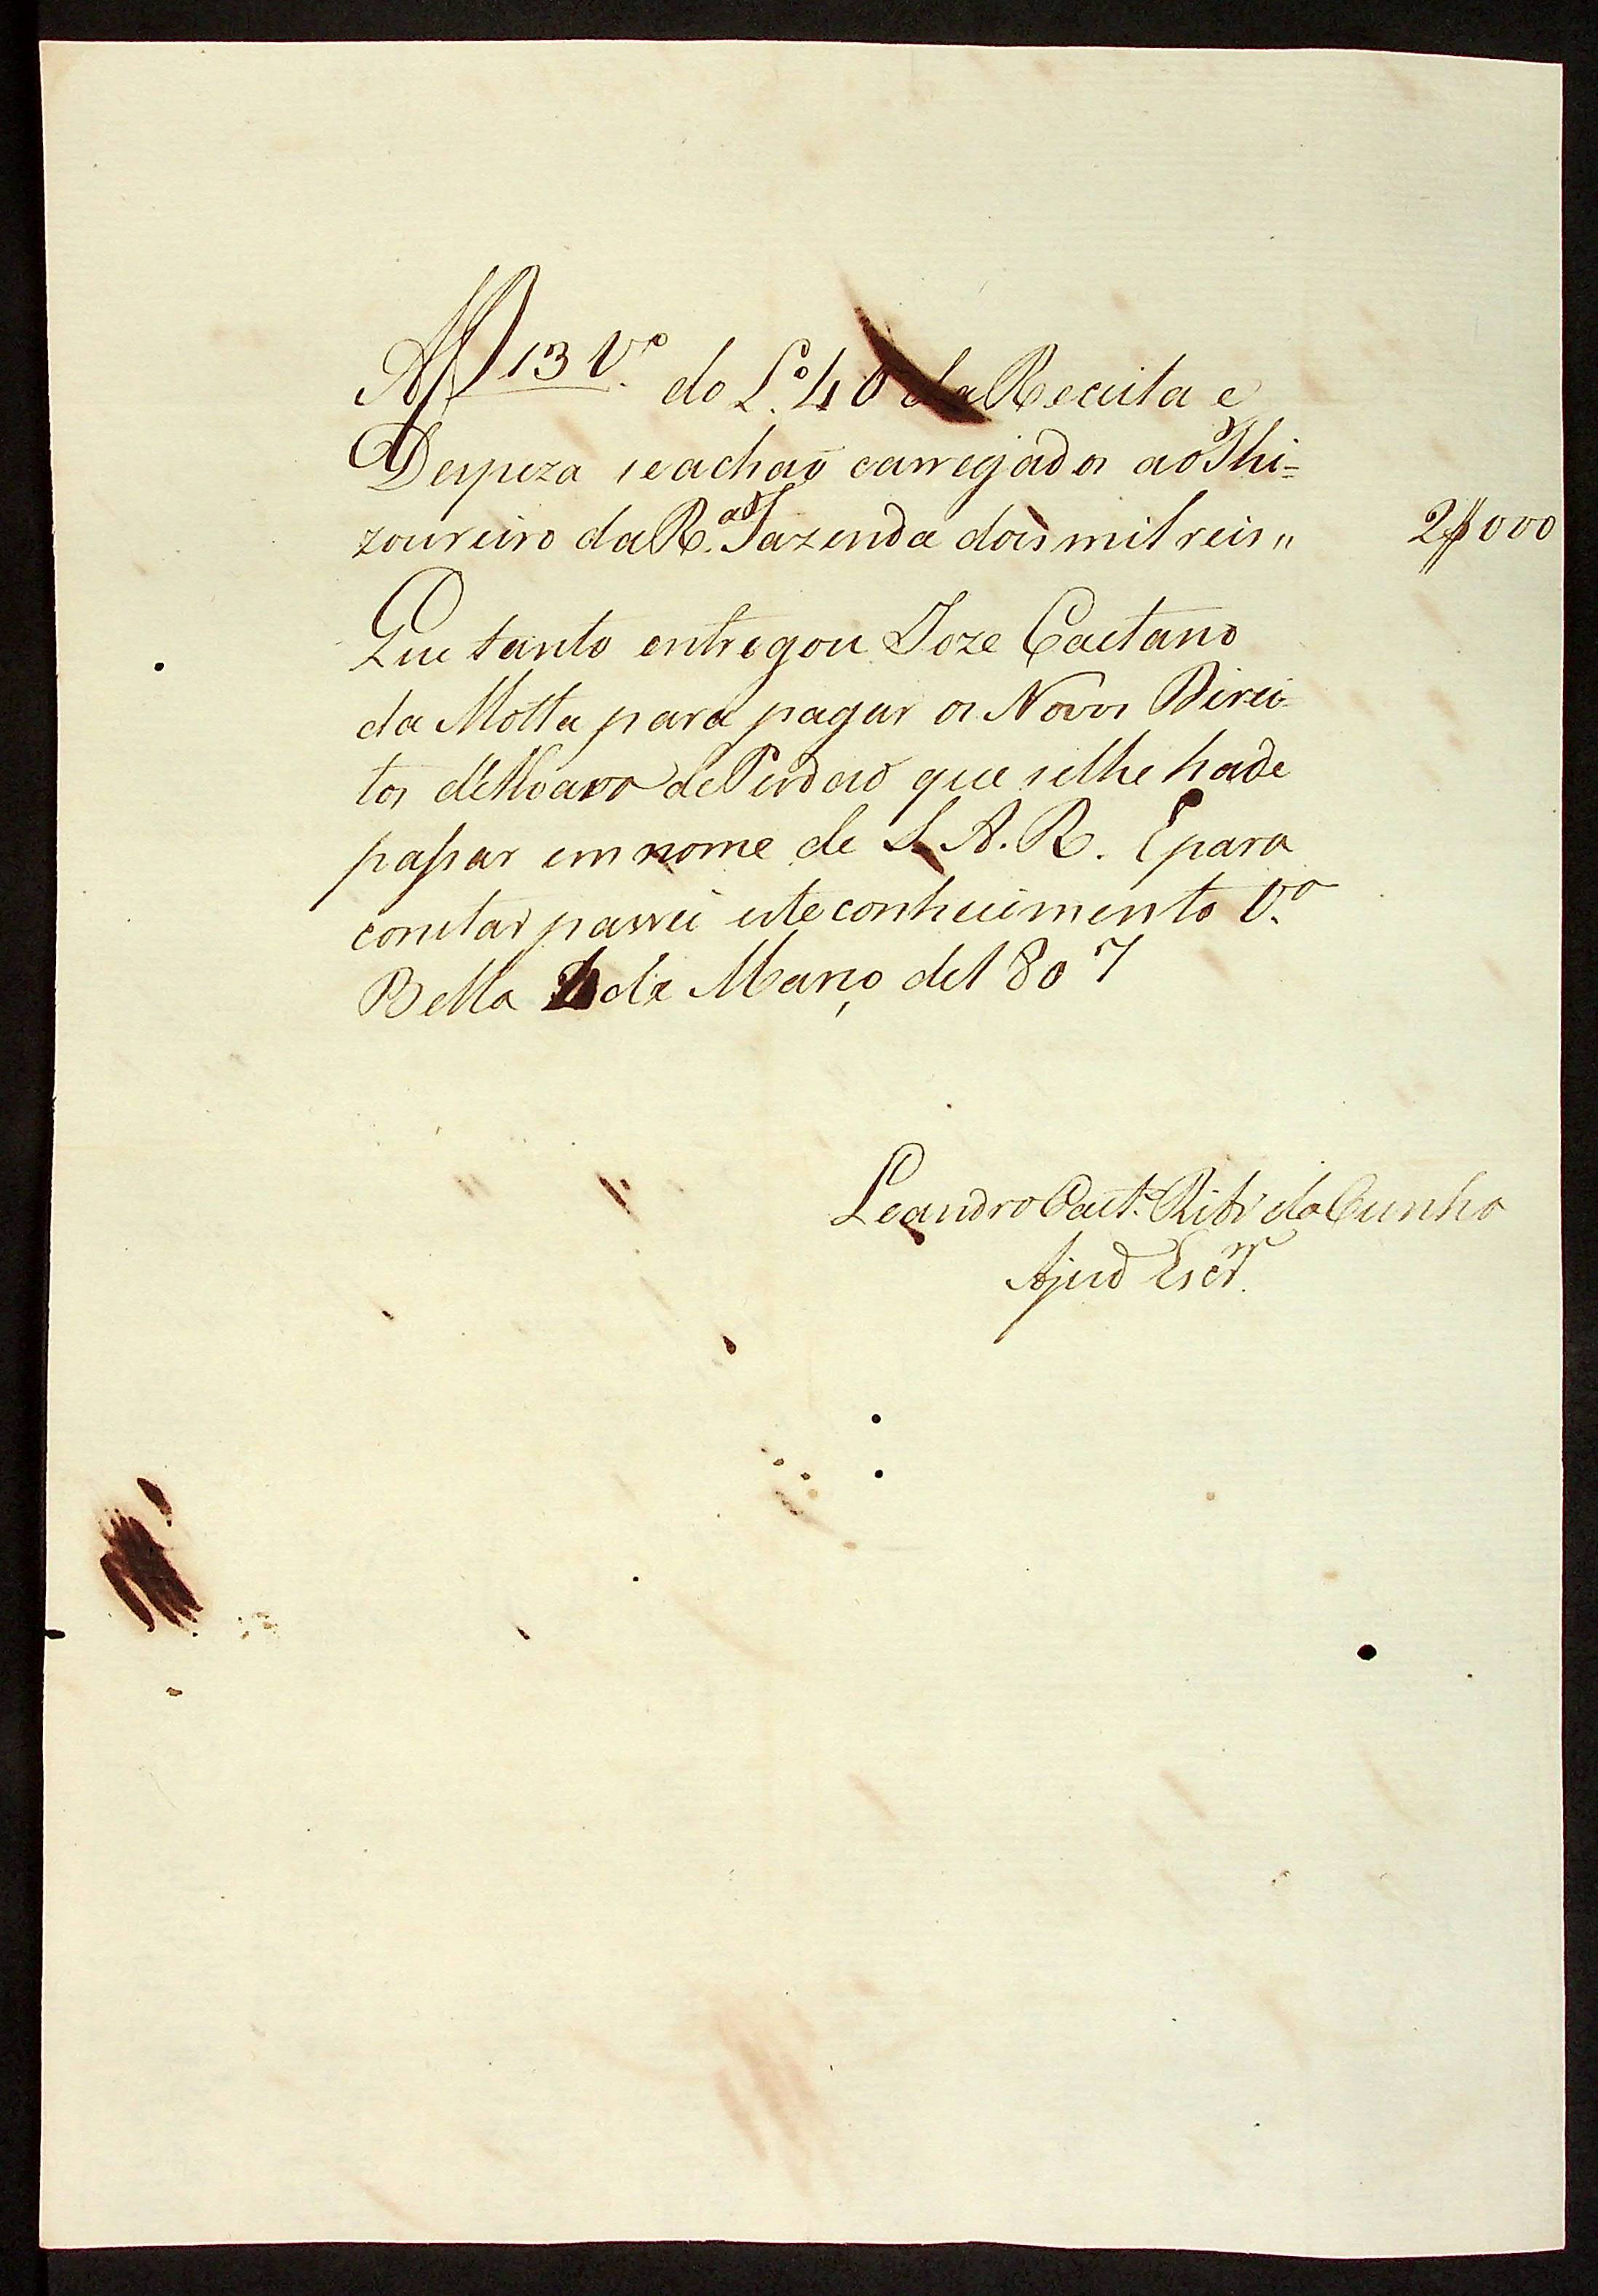 Aff 13 Vº do Lº 40 da Receita e
Despeza se achaõ carregados ao Thi=
zoureiro da R.al Fazenda dois mil reis,, 2$000
Que tanto entregou Joze Caetano
da Motta para pagar os Novos Direi-
tos d'Alvara de Perdaõ que selhe hade
passar em nome de S. A. R. E para
constar passei este conhecimento V.a
Bella de Março de 1807
Leandro Caet.º Ribr.º da Cunha
Ajud Escr.